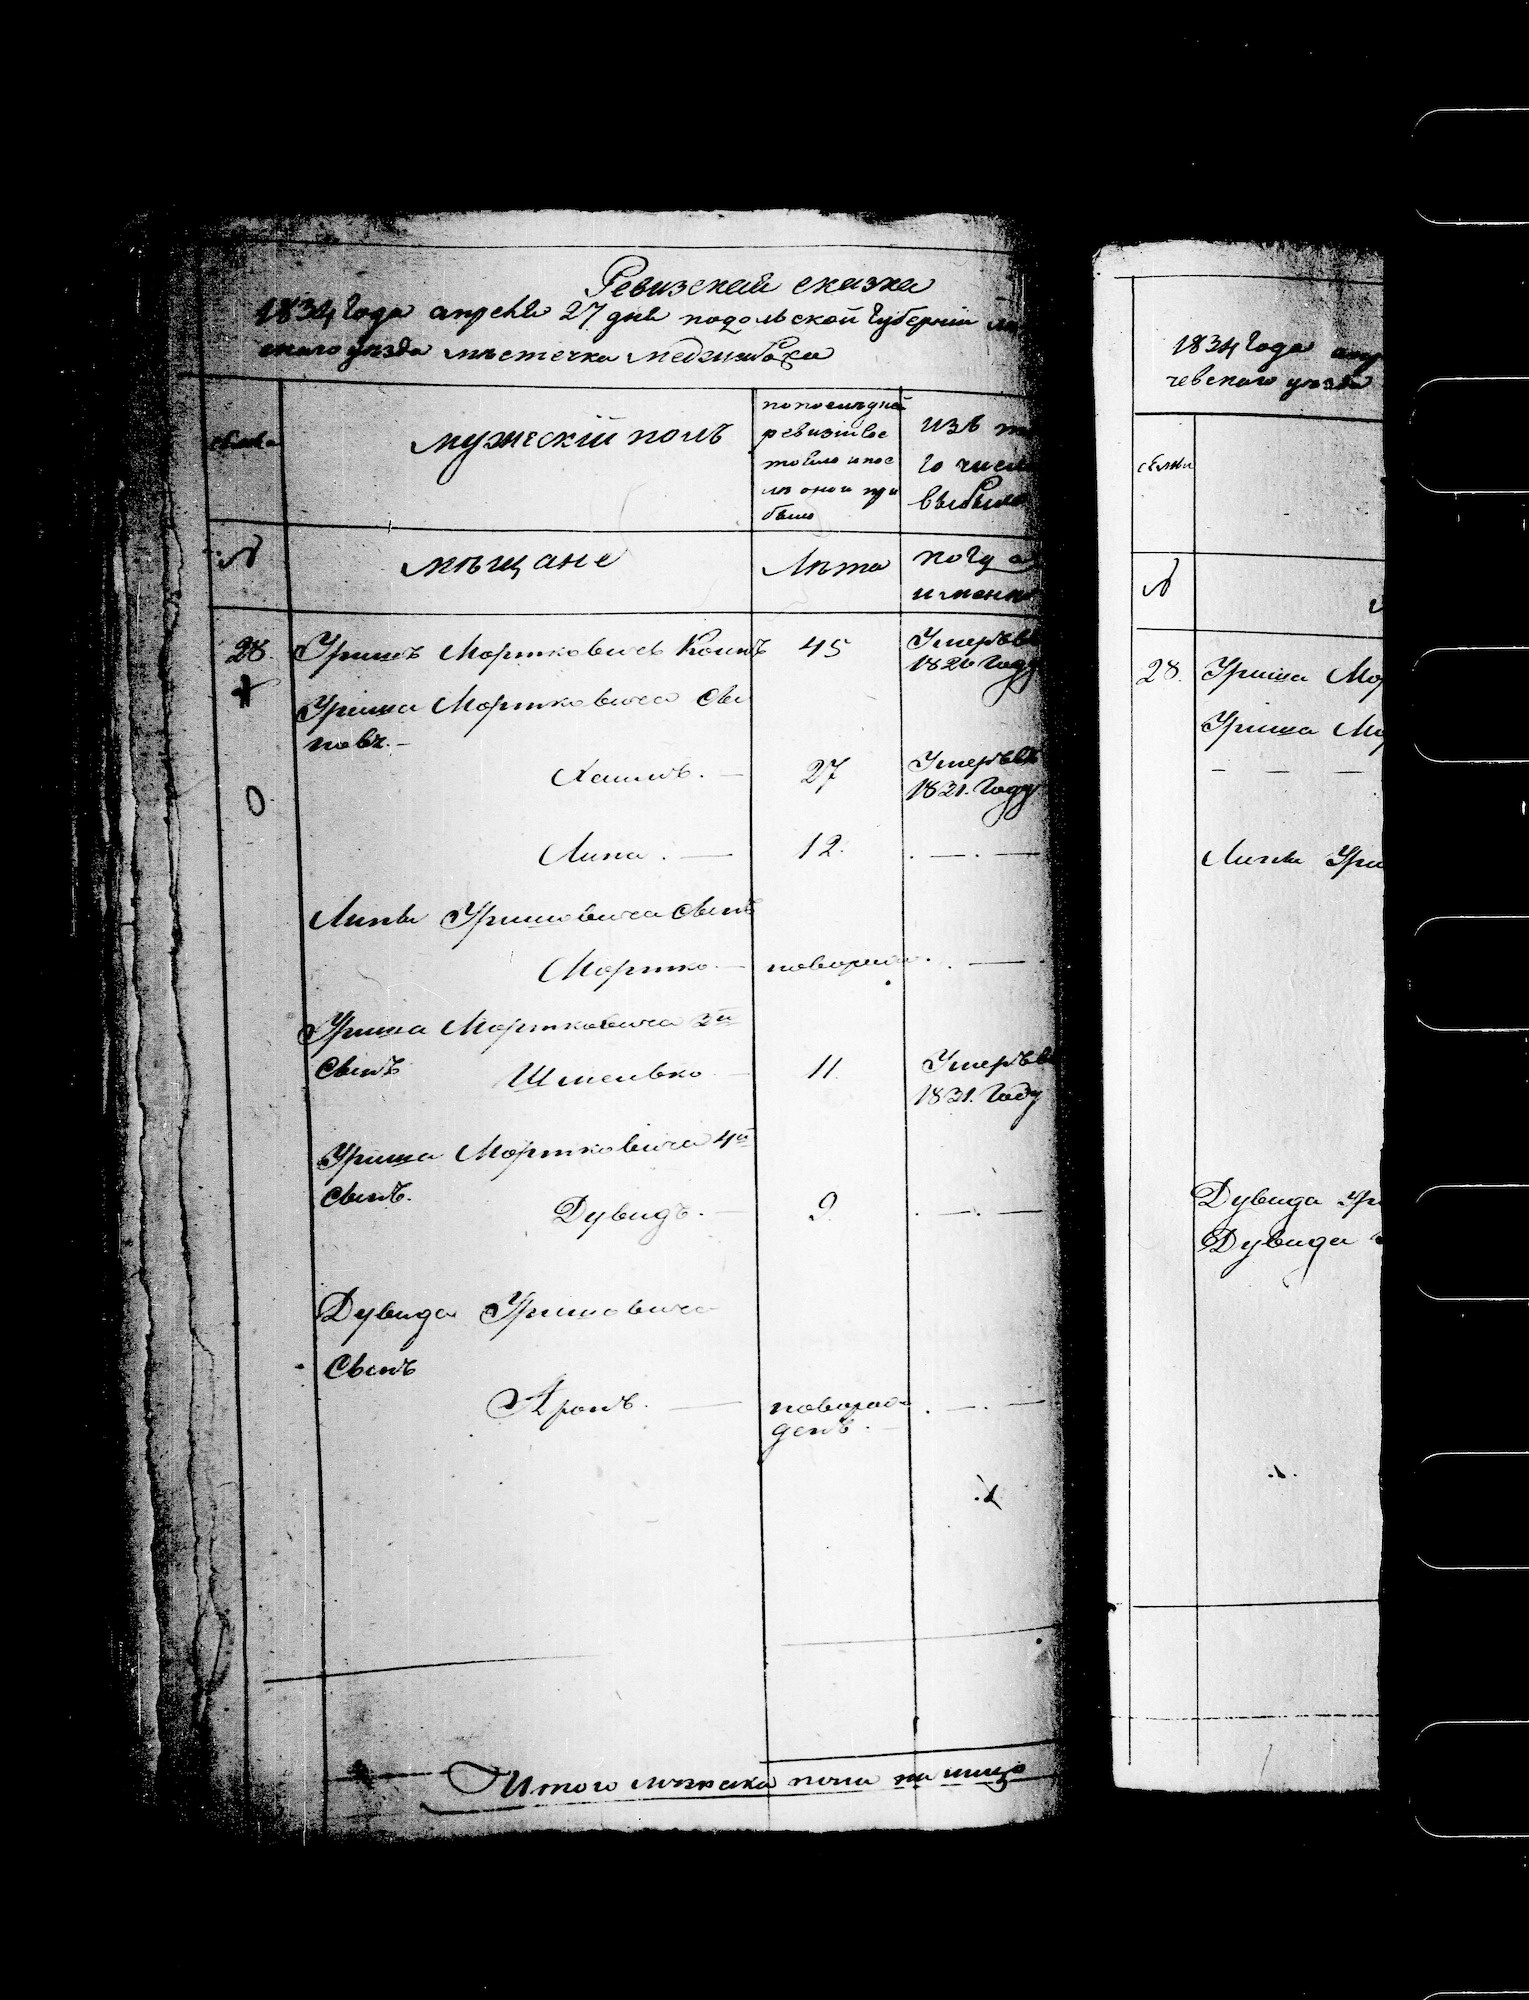 Ревизская сказка
1834 Года апреля 27 дня подольской Губернии
скаго уезда мъстечка Меджибожа
мужескій полъ
по последней
ревизіи со
стояло и пос
лѣ оной при
было
изъ то
го числа
выбыло
семьи
№
мѣщане
Лѣта
когда
именно
28.
Уришъ Мортковичъ
45
Умеръ въ
1820 Году
Уриша Мортковича сы
новья. —
Хаимъ. —
27
Умеръ въ
1831. Году
Липа. —
12.
Липы Уришовича сынъ
Мортко. —
новорож
Уриша Мортковича 3й
сынъ
Шмелько —
11.
Умеръ въ
1831. Году
Уриша Мортковича 4й
сынъ.
Дувидъ. —
9.
Дувида Уришовича
сынъ
Аронъ. —
новорож
денъ. —
Итого мужска пола на лицо
1834 Года апр
чевскаго уезда
семьи
№
28.
Уриша Мор
Уриша Мор
— — —
Липы Ури
Дувида Ури
Дувида